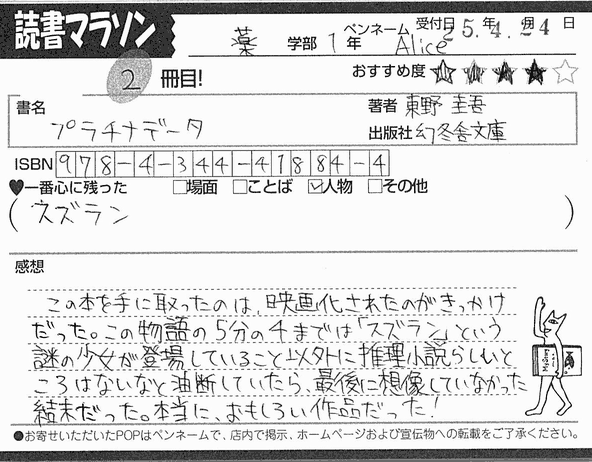 読書マラソン
薬 学部 1年 ペンネーム Alice 受付日 25年 4月 24日
2 冊目! おすすめ度 ★★★★☆
書名 プラチナデータ
著者 東野 圭吾
出版社 幻冬舎文庫
ISBN 978-4-344-41884-4
♥一番心に残った □場面 □ことば ☑人物 □その他
(スズラン)
感想
この本を手に取ったのは、映画化されたのがきっかけ
だった。この物語の5分の4までは「スズラン」という
謎の少女が登場していること以外に推理小説らしいと
ころはないなと油断していたら、最後に想像していなかった
結末だった。本当に、おもしろい作品だった!
●お寄せいただいたPOPはペンネームで、店内で掲示、ホームページおよび宣伝物への転載をご了承ください。